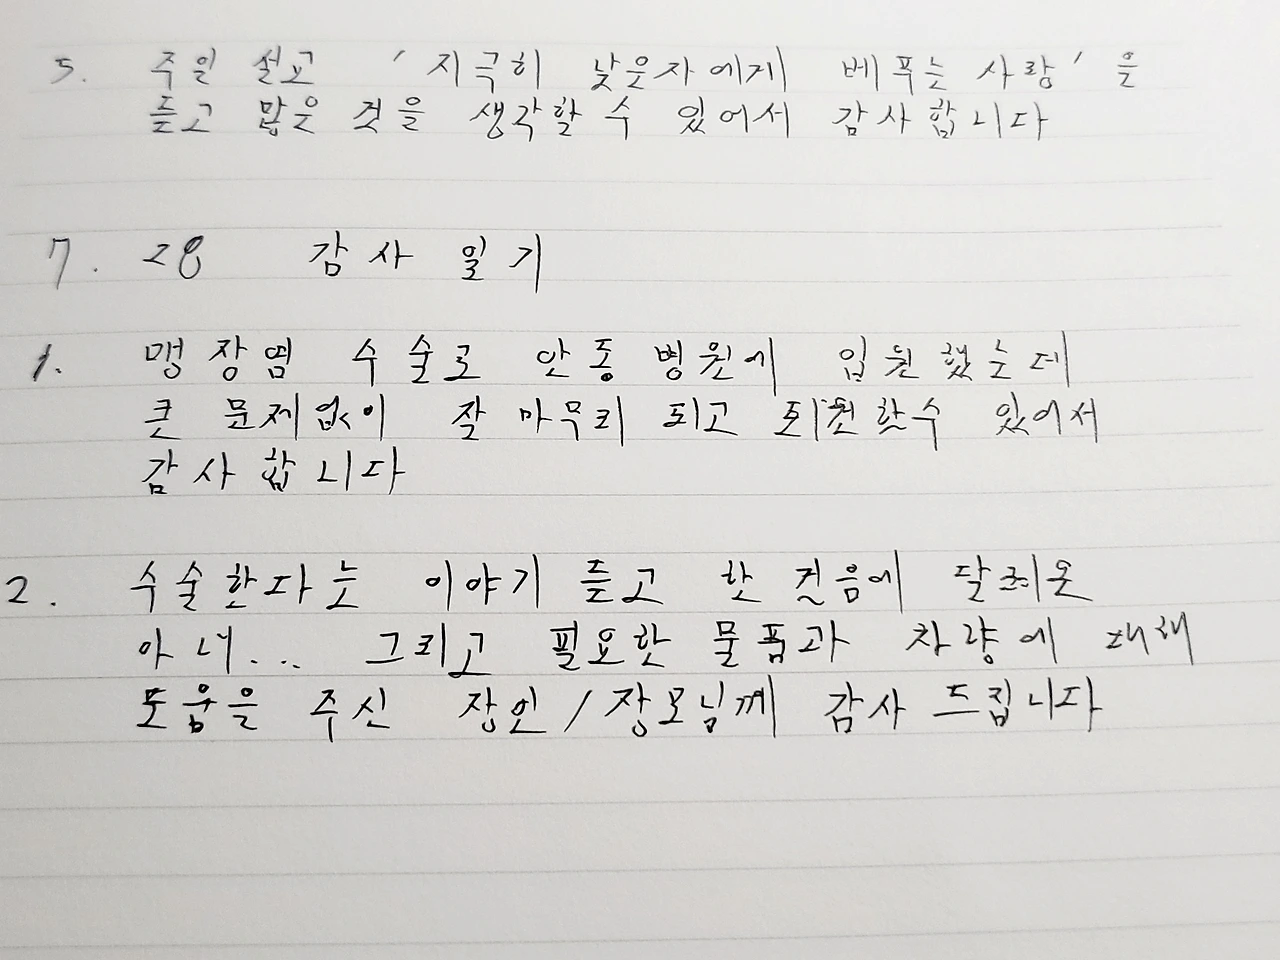 5. 주일 설교 '지극히 낮은자에게 베푸는 사랑'을
듣고 많은 것을 생각할 수 있어서 감사합니다
7. 28 감사 일기
1. 맹장염 수술로 안동 병원에 입원했는데
큰 문제없이 잘 마무리 되고 퇴원할수 있어서
감사합니다
2. 수술한다는 이야기 듣고 한 걸음에 달려온
아내... 그리고 필요한 물품과 차량에 대해
도움을 주신 장인/장모님께 감사 드립니다